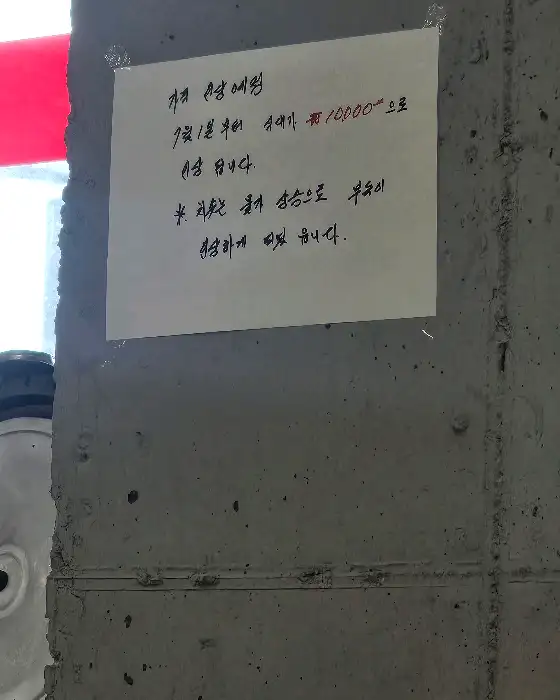 가격 인상 예정
7월 1일 부터 식대가 ₩10,000-으로
인상 됩니다.
※ 치솟는 물가 상승으로 부득이
인상하게 되었 습니다.